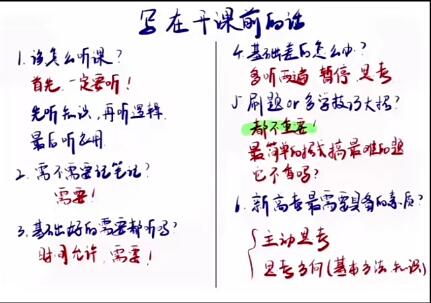 写在干课前的话
1. 该怎么听课?
首先,一定要听!
先听知识,再听逻辑
最后听应用
2. 需不需要记笔记?
需要!
3. 基础好的需要都听吗?
时间允许,需要!
4. 基础差的怎么办?
多听两遍 暂停 思考
5. 刷题 or 多学技巧大招?
都不重要!
最简单的招式搞最难的题
它不香吗?
6. 新高考最需要具备的素质?
主动思考
思考为何(基本方法、知识)